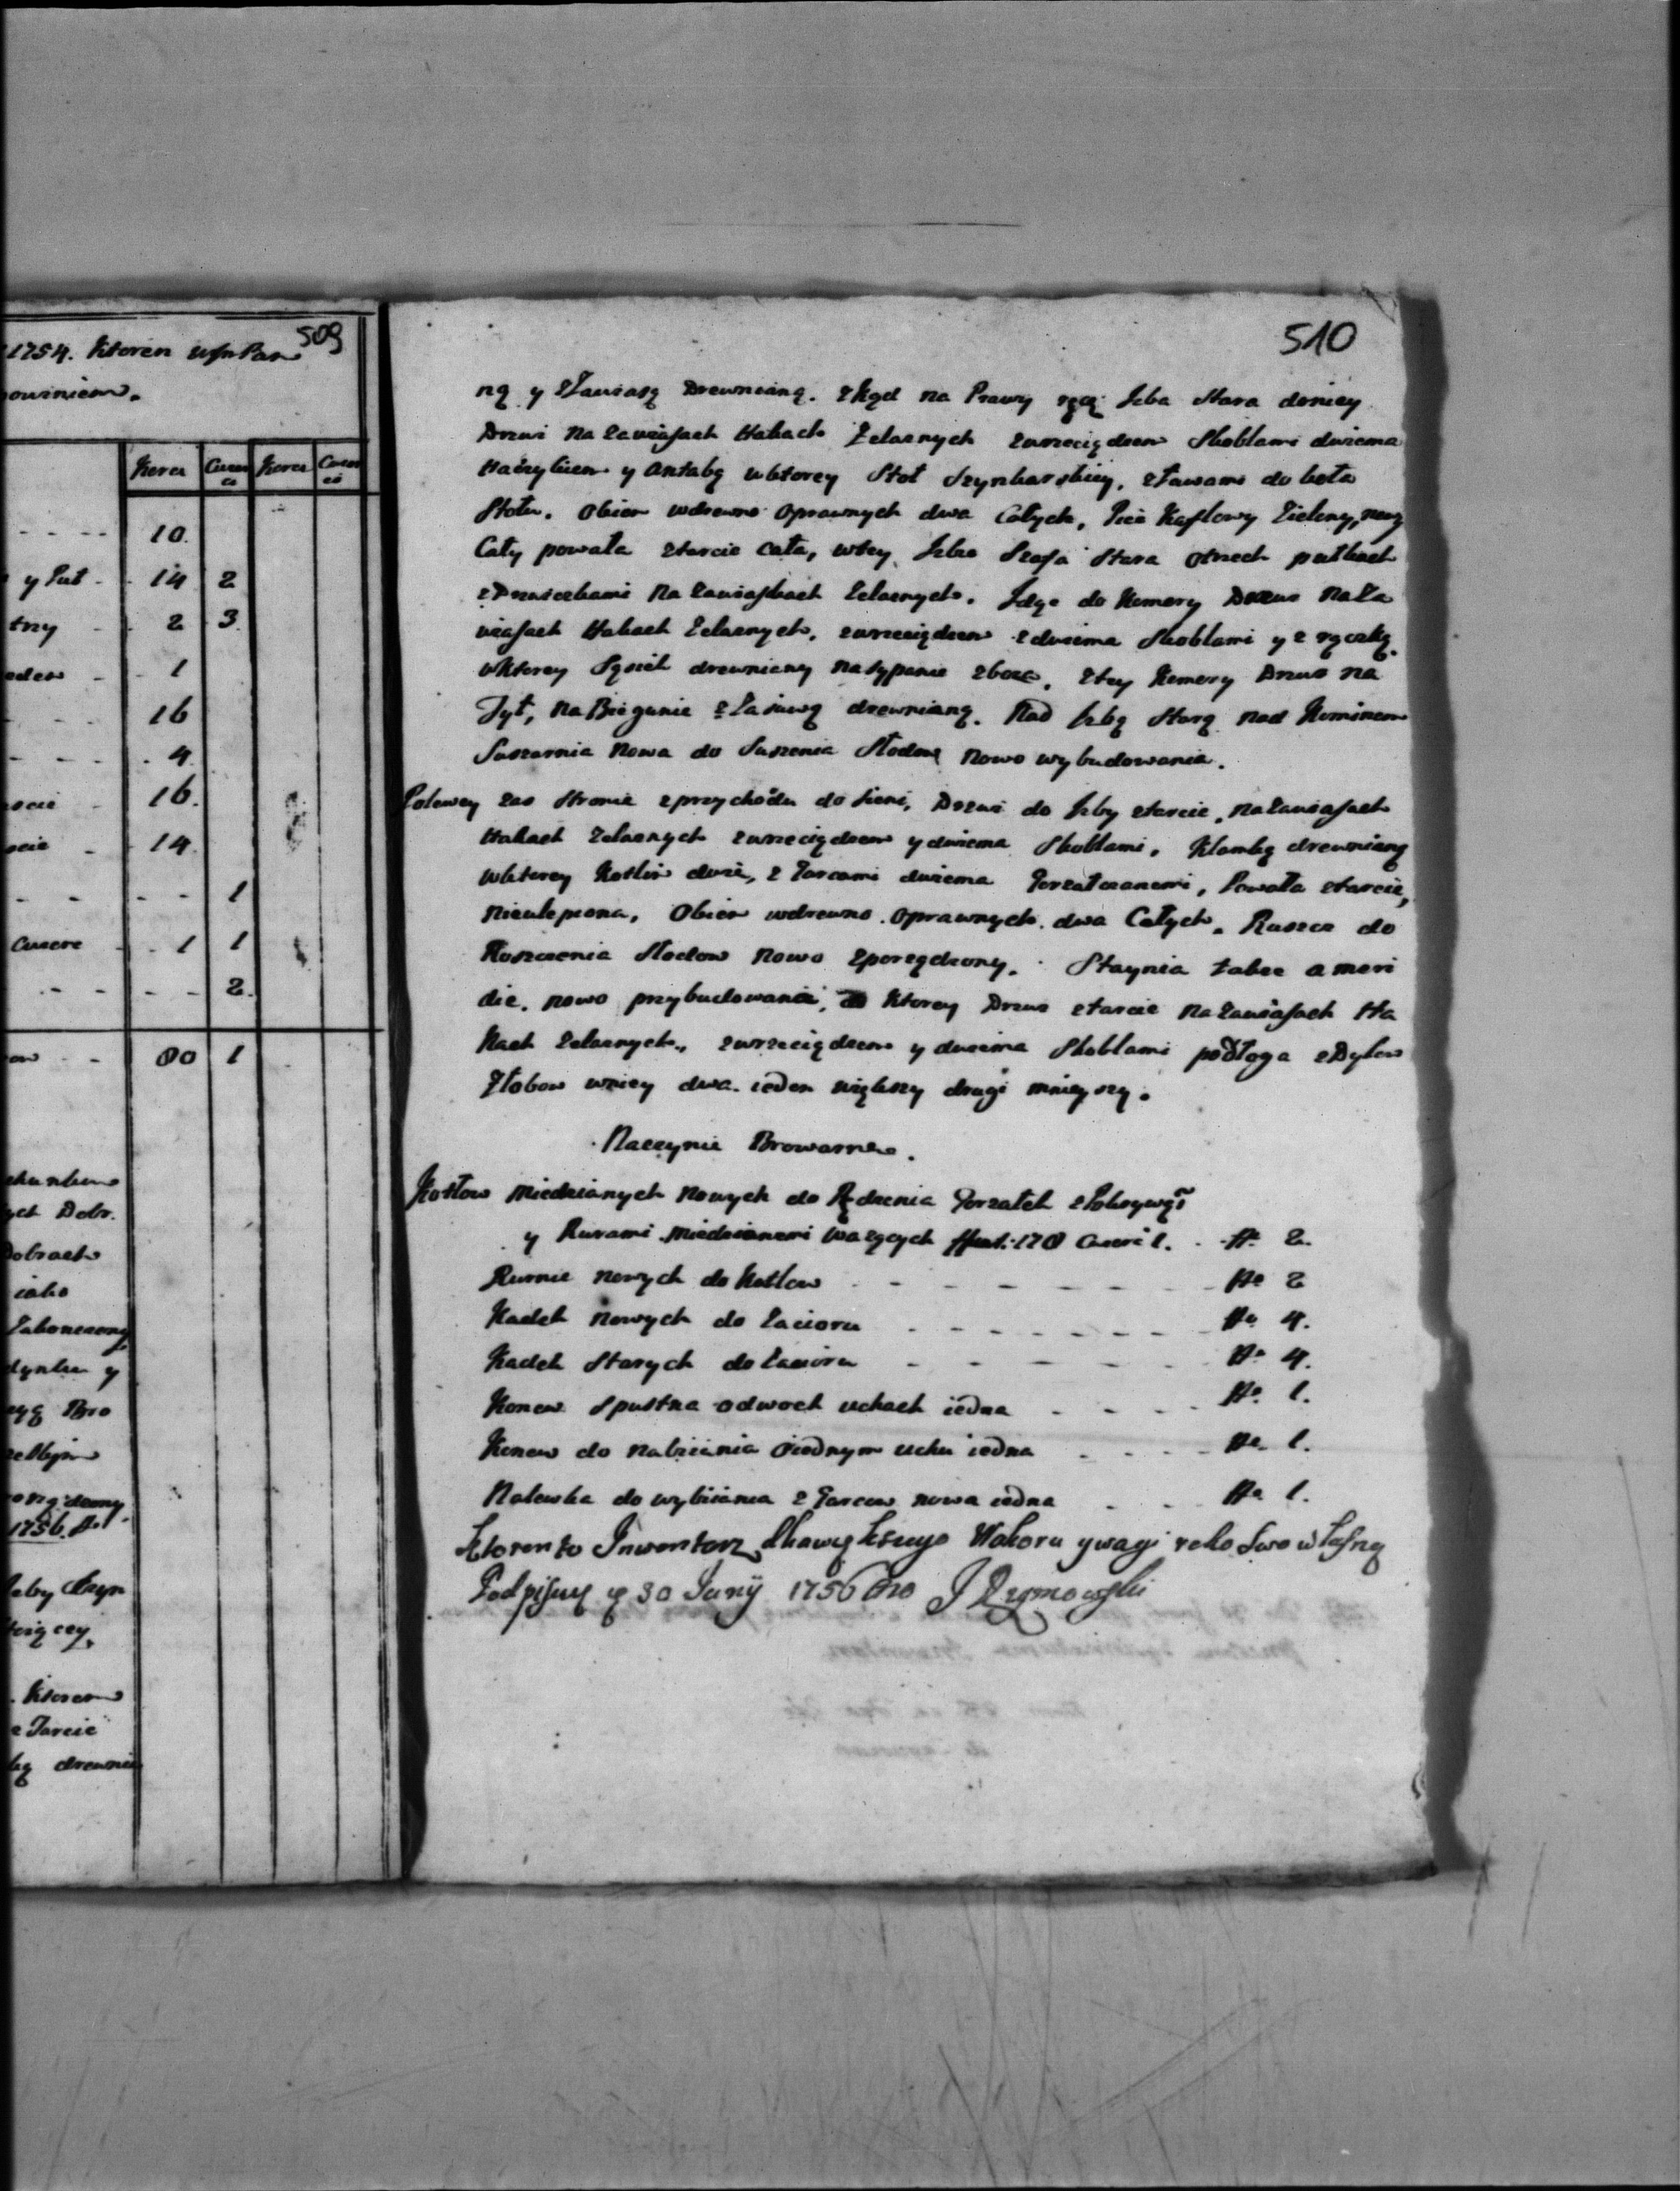 509
1754. Ktoren
owiniem.
Korcy Cwierci Korcy Cwierci
10
y Put 14 2
trzy 2 3
1
16
4
16.
14
1
Cwierc 1 1
2.
80 1
ych Dobr.
Dobrach
iako
Zakonczony
dynku y
Bro
1756.
ktorem
z Tarcic
ką drewnia
510
ną y zZawiasą Drewnianą. zkąd na Prawy ręcę Izba Stara doniey
Drzwi na Zawiasach Hakach Żelaznych zwrzeciądzem Skoblami dwiema
Haczykiem y Antabą wktorey Stoł Szynkarskiey, zławami do koła
Stołu. Obien wdrewno oprawnych dwa Całych, Piec Kaflowy Zielony, nowy
Cały powała ztarcic cała, wtey Izbie Szafa Stara otrzech pułkach
zDrzwiczkami na Zawiaskach Żelaznych. Idąc do Komory Drzwi na Za
wiasach Hakach Żelaznych, zwrzeciądzem zdwiema Skoblami y z rączką.
wktorey Sąsiek drewniany na sypanie zboza. ztey Komory Drzwi na
Tył, na Biegunie z Zasuwą drewnianą. Nad Izbą Starą nad Kominem
Suszarnia Nowa do Suszenia Słodow nowo wybudowania.
Polewey zas Stronie zprzychodu do Sieni, Drzwi do Izby ztarcic, na Zawiasach
Hakach Żelaznych zwrzeciądzem y dwiema Skoblami, Klamką drewnianą
wktorey Kotlin dwie, z Garcami dwiema Gorzałczanemi, Powała ztarcic,
nieulepiona, Obien wdrewno oprawnych dwa Całych. Raszcz do
Roszczenia Słodow nowo zporządzony. Staynia takze a meri
die. nowo przybudowania, do ktorey Drzwi ztarcic na Zawiasach Ha
kach Żelaznych, zwrzeciądzem y dwiema Skoblami podłoga zDylow
Złobow wniey dwa. ieden większy drugi mnieyszy.
Naczynie Browarne.
Kotłow Miedzianych Nowych do Pędzenia Gorzałek zPokrywą
y Rurami Miedzianemi wazących 170 Cwierci 1. No 2.
Rurnic nowych do Kotłow No 2
Kadek Nowych do Zacioru No 4.
Kadek Starych do Zacioru No 4.
Konew Spustna odwoch uchach iedna No 1.
Konew do nabiiania oiednym uchu iedna No 1.
Nalewka do wybiiania z Garcow nowa iedna No 1.
Ktoren to Inwentarz dla większego Waloru y wagi reko Swo własną
Podpisuię 30 Junij 1756